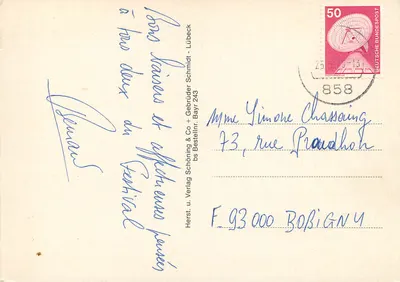 Bons baisers et affectueuses pensées
à tous deux du Festival
Bernard
Herst. u. Verlag Schöning & Co + Gebrüder Schmidt - Lübeck
bs Bestellnr. Bayr 243
50
DEUTSCHE BUNDESPOST
858
Mme Simone Chassaing
73, rue Proudhon
F_93000 BOBIGNY